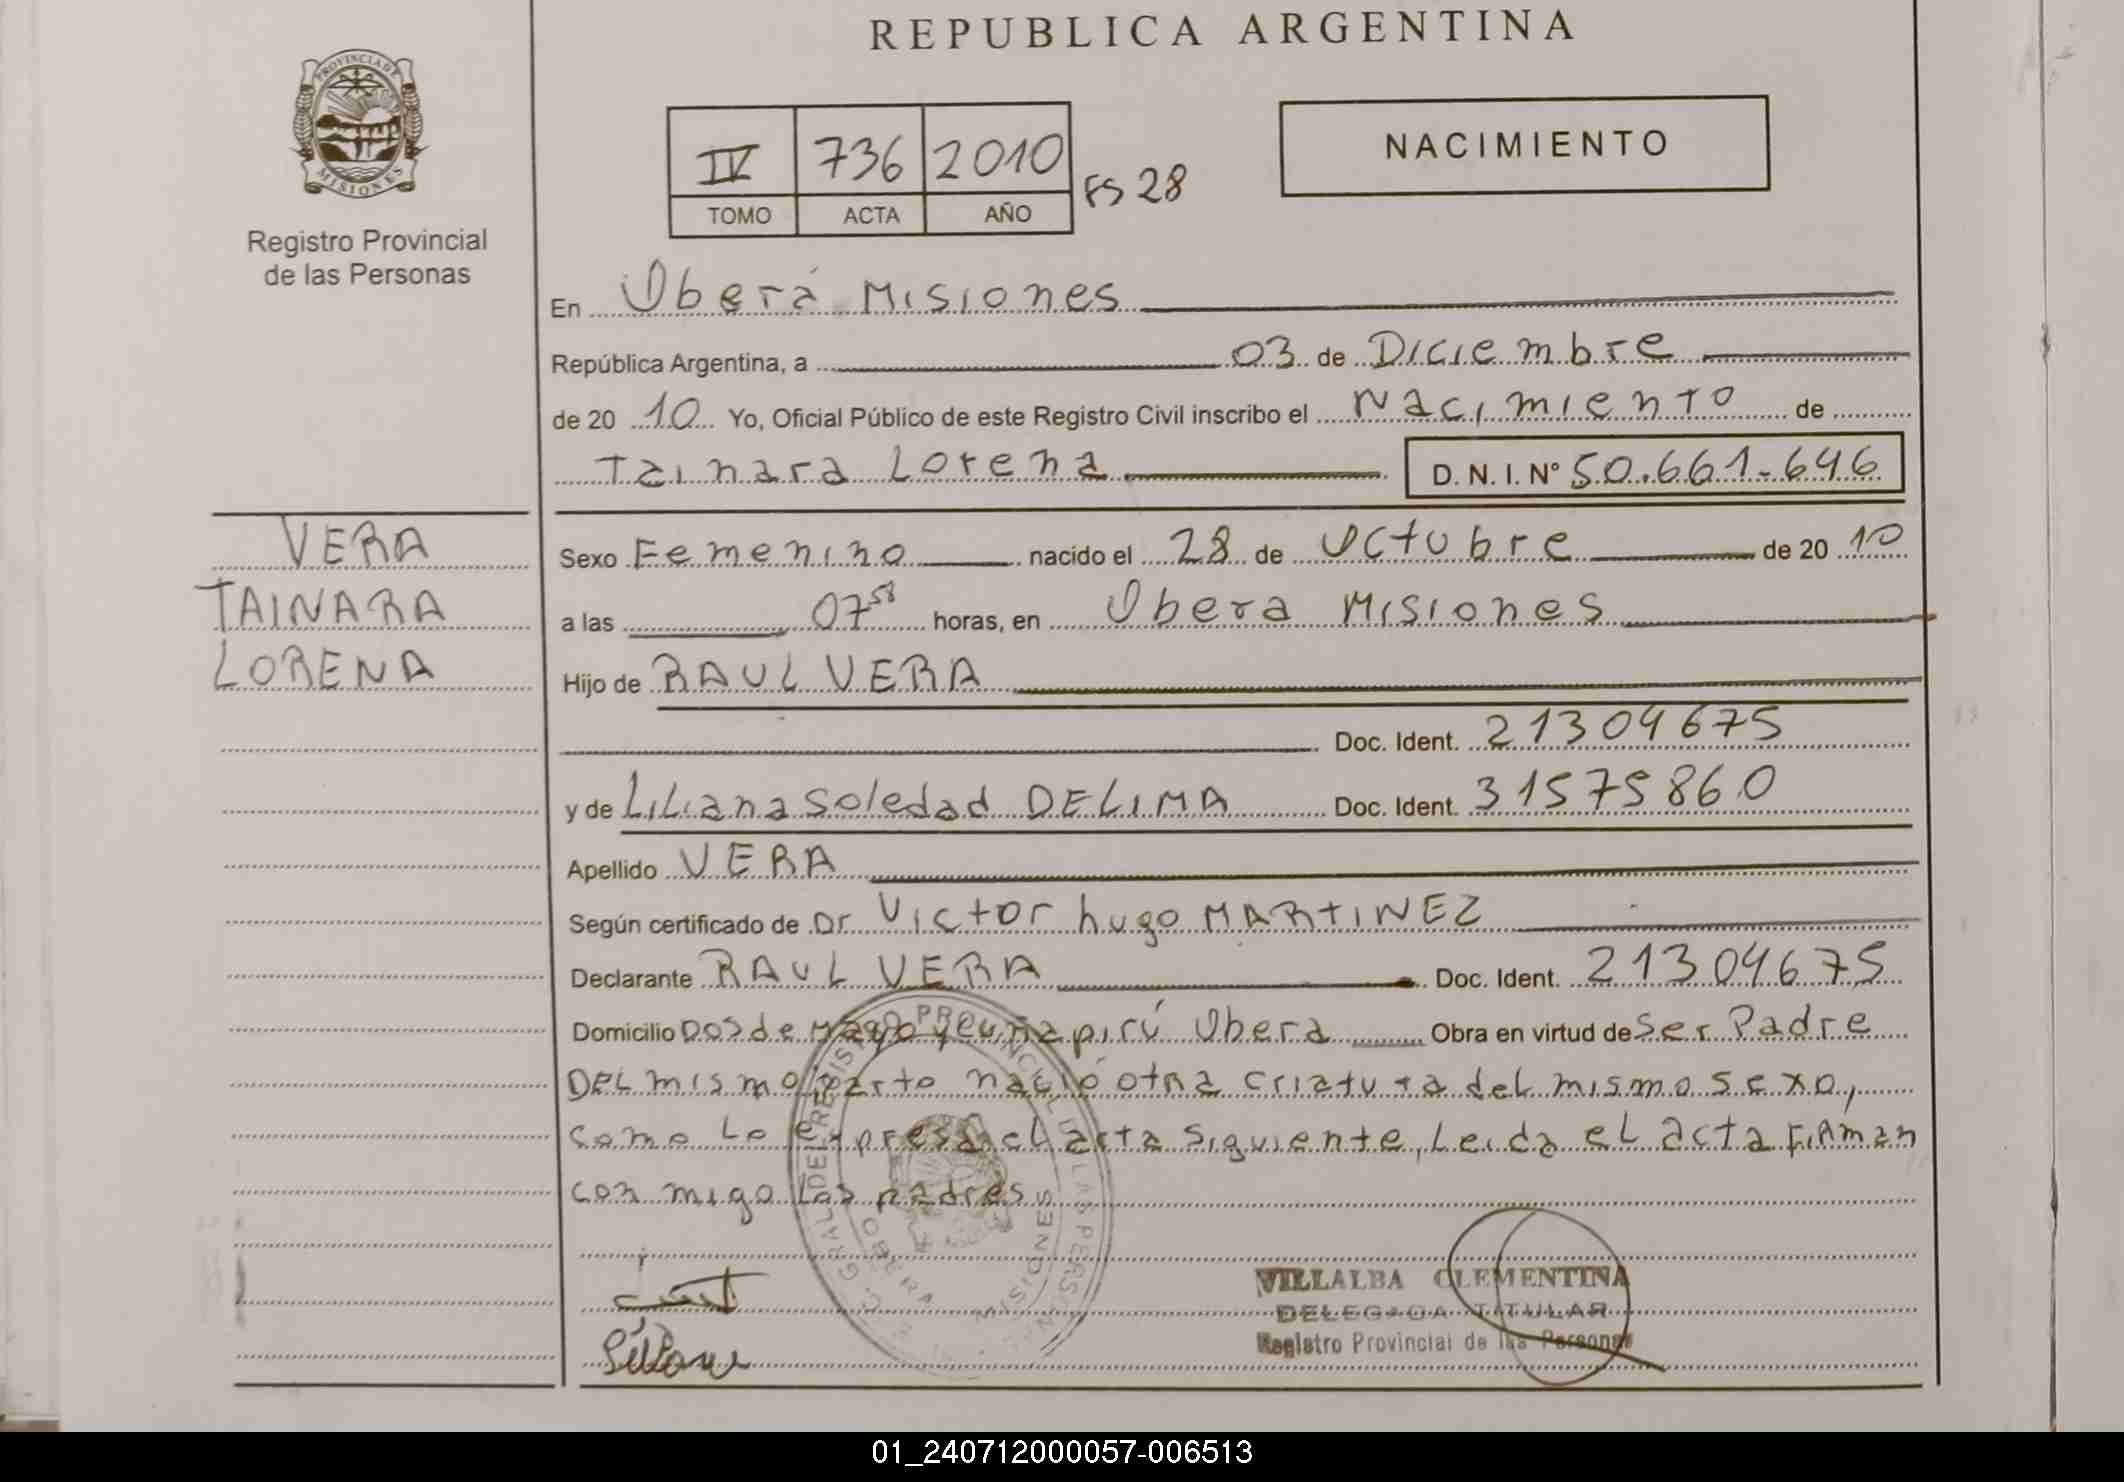 REPUBLICA ARGENTINA
PROVINCIA DE MISIONES
Registro Provincial
de las Personas
IV 736 2010 FS 28
TOMO ACTA AÑO
NACIMIENTO
En Oberá Misiones
República Argentina, a 03 de Diciembre
de 20 10 Yo, Oficial Público de este Registro Civil inscribo el Nacimiento de
Tainara Lorena D. N. I. Nº 50.661.646
VERA
TAINARA
LORENA
Sexo Femenino nacido el 28 de Octubre de 20 10
a las 07 58 horas, en Obera Misiones
Hijo de RAUL VERA
Doc. Ident. 21304675
y de Liliana Soledad DELIMA Doc. Ident. 31575860
Apellido VERA
Según certificado de Dr Victor hugo MARTINEZ
Declarante RAUL VERA Doc. Ident. 21304675
Domicilio Dos de Mayo y cuñapirú Obera Obra en virtud de Ser Padre
DEL mismo parto nació otra criatura del mismo sexo,
como lo expresa el acta siguiente, Leida el acta firman
con migo los padres
VILLALBA CLEMENTINA
DELEGADA TITULAR
Registro Provincial de las Personas
01_240712000057-006513